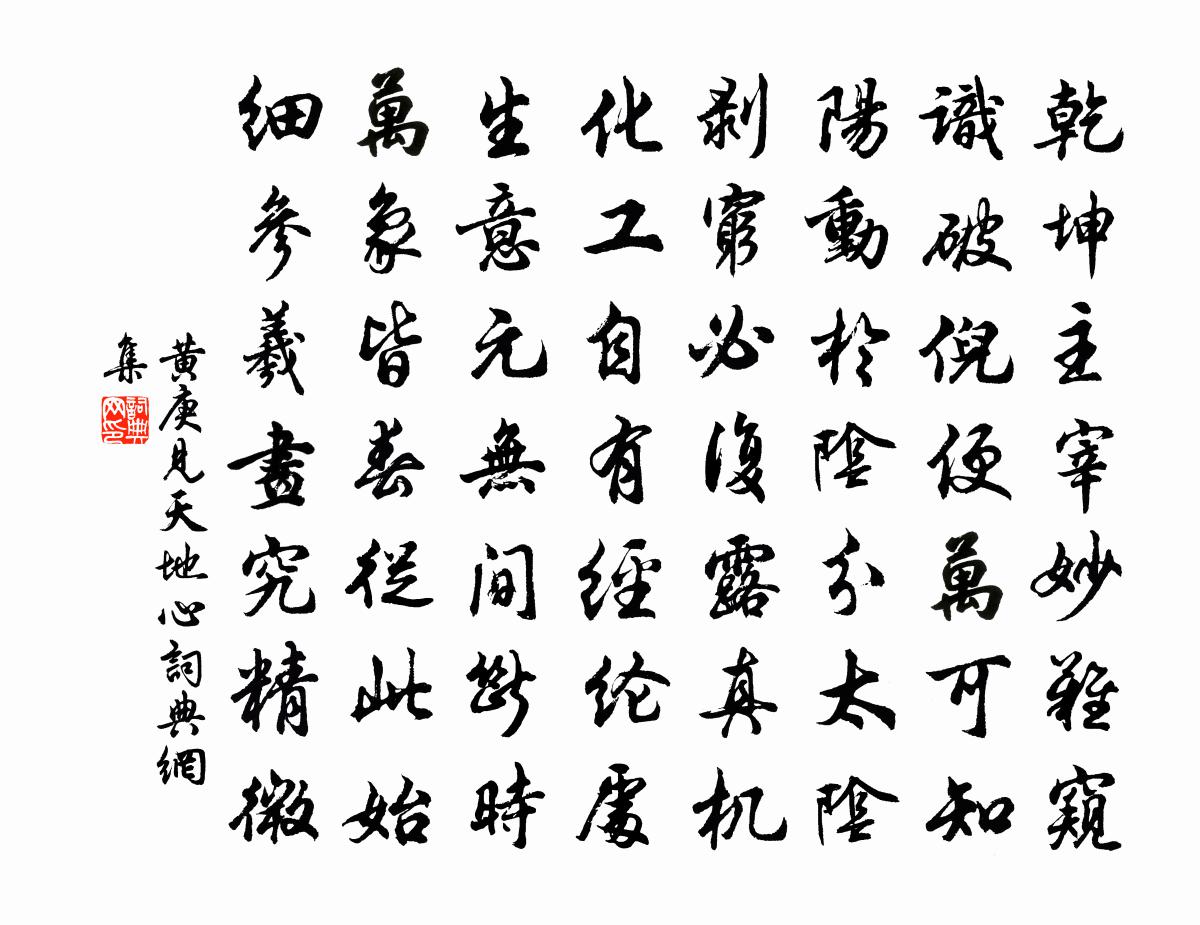 乾坤主宰妙難窺
識破倪便萬可知
陽動於陰分太陰
剥窮必復露真机
化工自有經纶處
生意元無間斷時
萬象皆春從此始
細參羲畫究精微
黄庚見天地心詞典網
集
詞典
网印